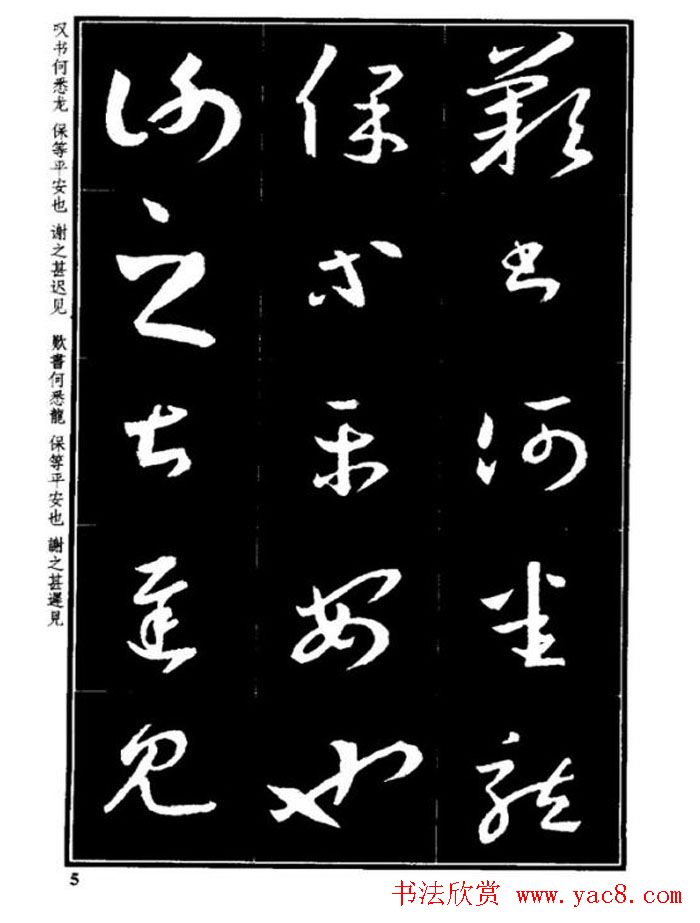 歎書何悉龍
保等平安也
謝之甚遲見
叹书何悉龙 保等平安也 谢之甚迟见 歎書何悉龍 保等平安也 謝之甚遲見
5
书法欣赏 www.yac8.com